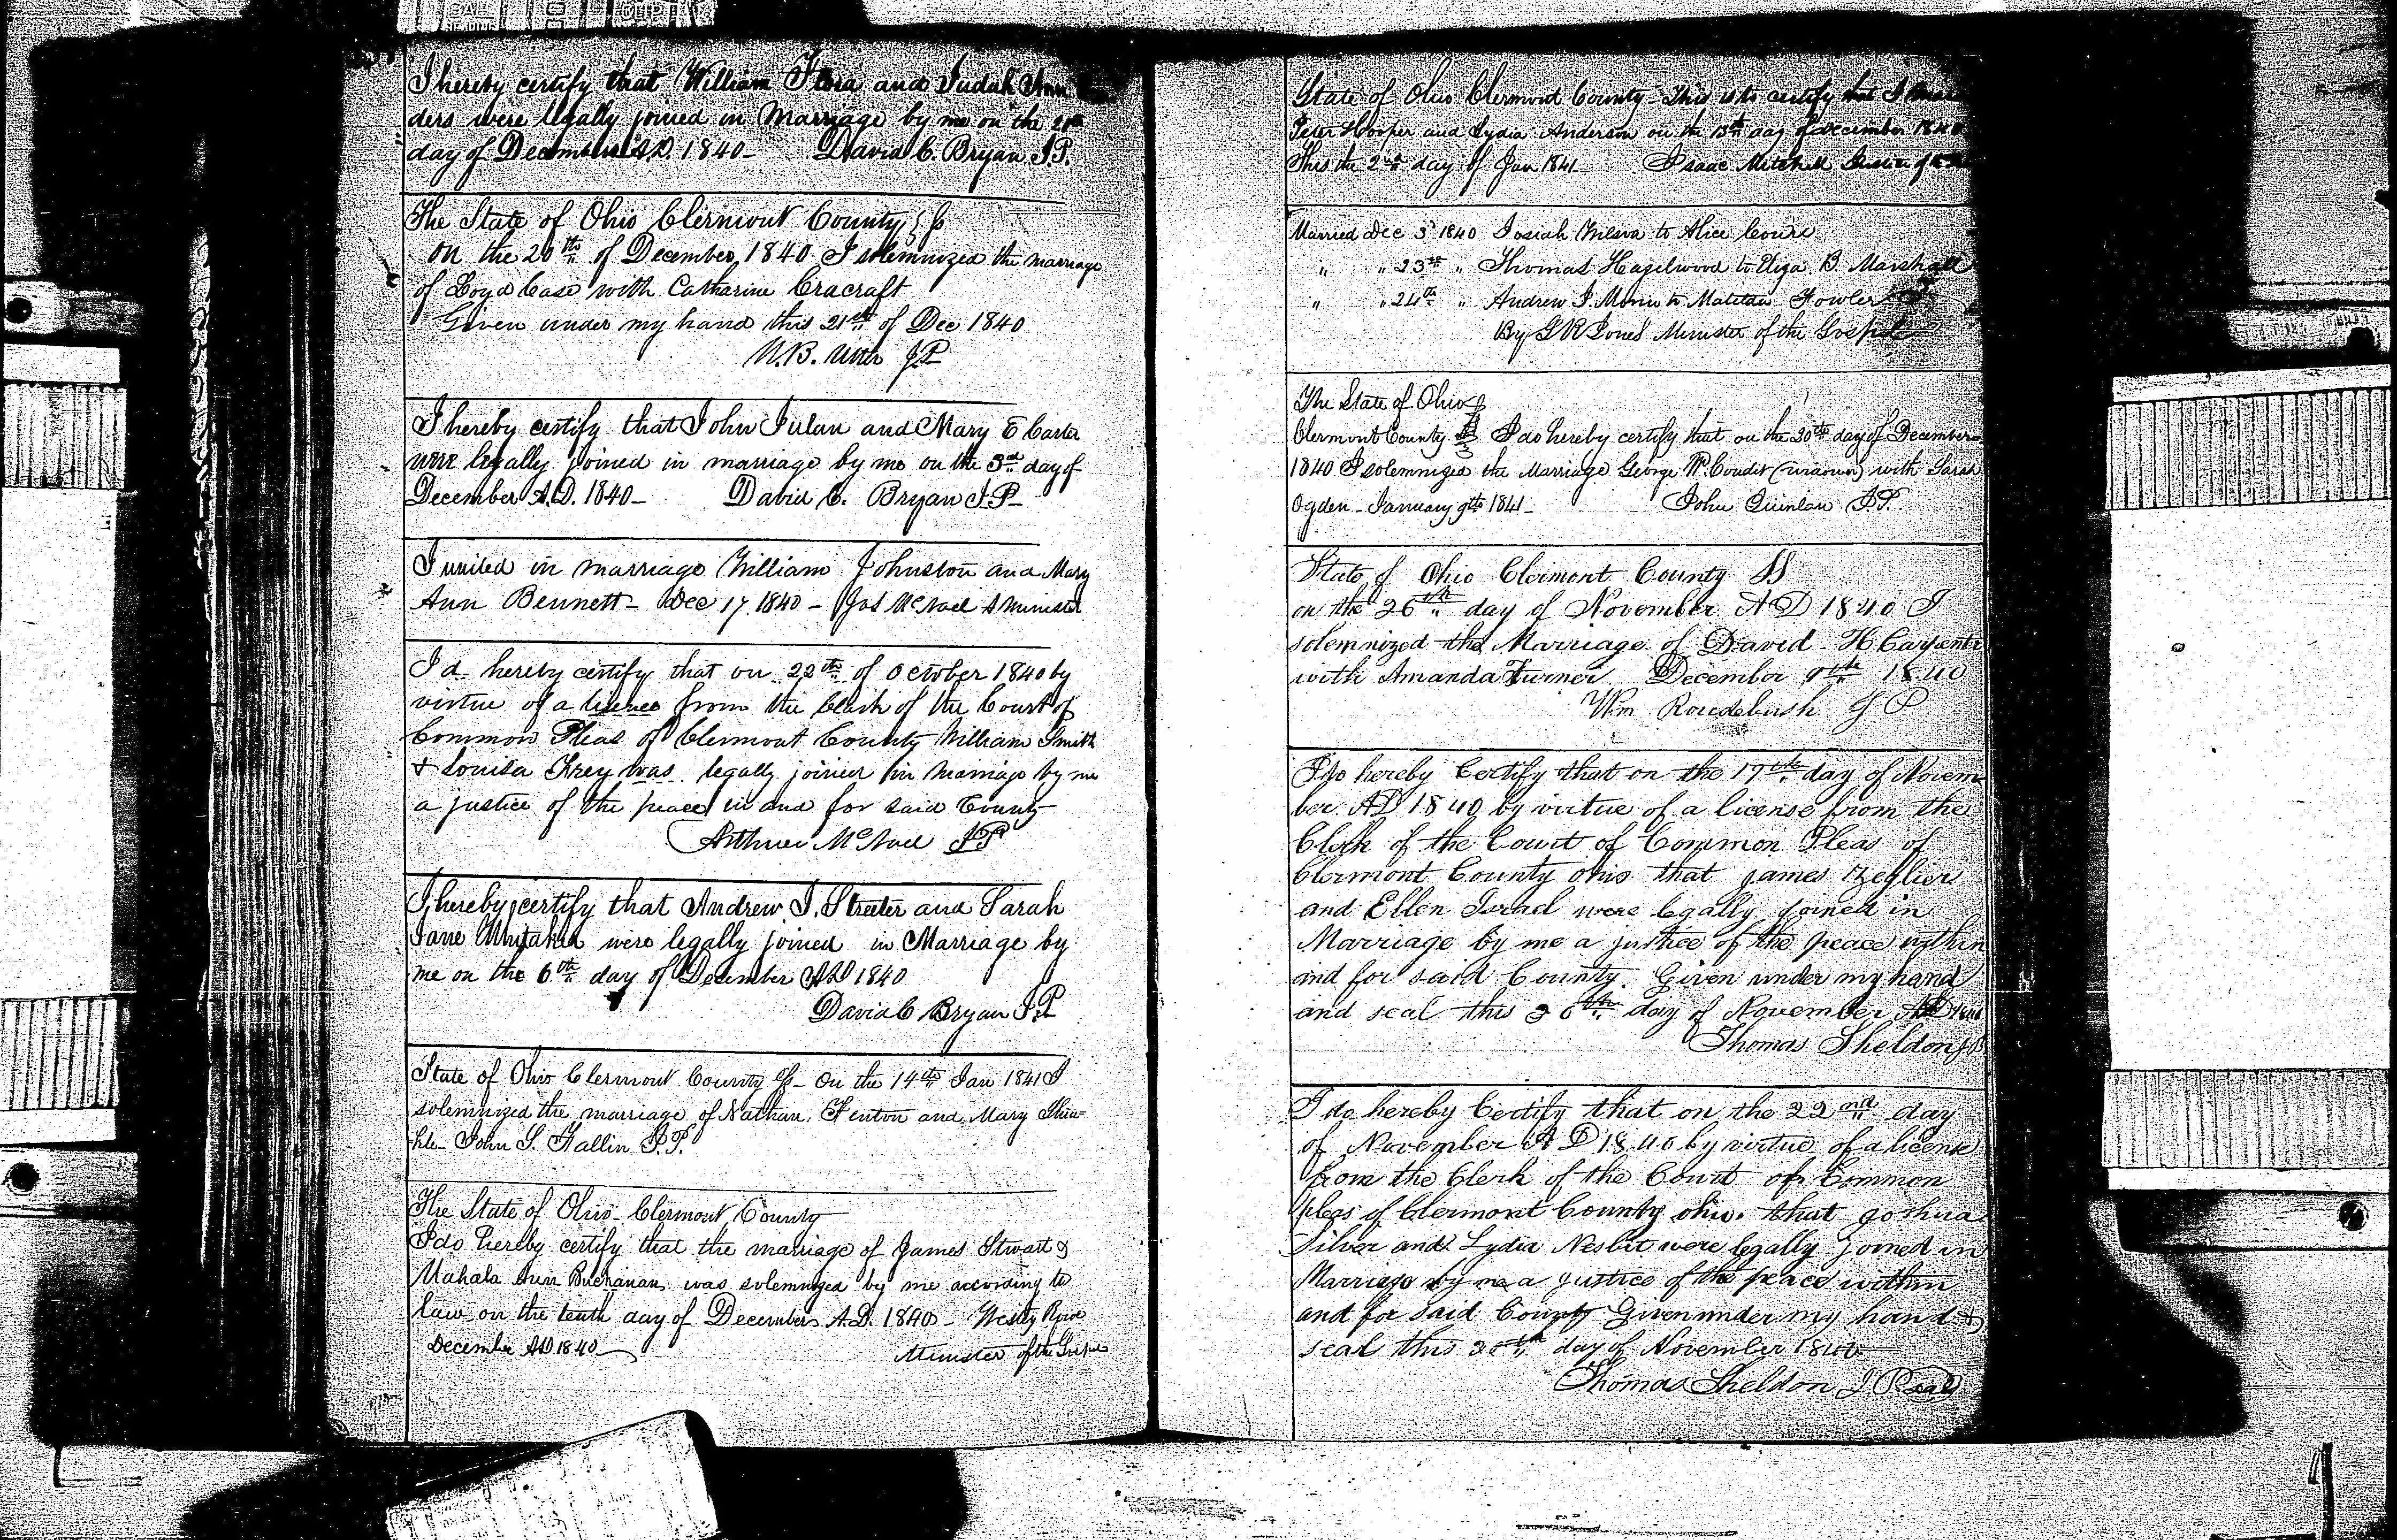 I hereby certify that William Flora and Judah Ann
ders were legally joined in Marriage by me on the
day of December A.D. 1840 - David C. Bryan J.P.
The State of Ohio Clermont County } ss
On the 20th of December 1840 I solemnized the marriage
of Loyd Case with Catharine Cracraft
Given under my hand this 21st of Dec 1840
N.B. Utter J.P.
I hereby certify that John Julan and Mary E Carter
were legally joined in marriage by me on the 3rd day of
December A.D. 1840 - David C. Bryan J.P.
I united in marriage William Johnston and Mary
Ann Bennett - Dec 17. 1840 - Minister
I do hereby certify that on 22th of October 1840 by
virtue of a from the Clerk of the Court of
Common Pleas of Clermont County William Smith
& Louisa Frey was legally joined in marriage by me
a justice of the peace in and for said County
J.P.
I hereby certify that Andrew J. Streeter and Sarah
Jane were legally joined in Marriage by
me on the 6th day of December A.D 1840
David C Bryan J.P.
State of Ohio Clermont County ss - On the 14th Jan 1841 I
solemnized the marriage of Nathan Fenton and Mary
John S. Fallin J.P.
The State of Ohio - Clermont County
I do hereby certify that the marriage of James Stwart &
Mahala Ann Buchanan was solemnized by me according to
law on the tenth day of December A.D. 1840 - Westly Rowe
December A.D 1840 Minister of the Gospel
State of Ohio Clermont County - This is to certify that I
Peter Hooper and Lydia Anderson on the 13th day of December 1840
This the 2nd day of Jan 1841 - Isaac Mitchell Justice of
Married Dec 3 1840 Josiah Wilson to Alice
" " 23rd " Thomas Hazelwood to Eliza B. Marshall
" " 24th " Andrew J. to Matilda Fowler
By G R Jones Minister of the Gospel
The State of Ohio
Clermont County ss I do hereby certify that on the 30th day of December
1840 I solemnized the Marriage George W Coudit with Sarah
Ogden - January 9th 1841 - John Quinlan J.P.
State of Ohio Clermont County SS
on the 26th day of November A D 1840 I
solemnized the Marriage of David H Carpenter
with Amanda Turner December 9th 1840
Wm Roudebush J P
I do hereby Certify that on the 17th day of Novem
ber AD 1840 by virtue of a license from the
Clerk of the Court of Common Pleas of
Clermont County ohio that james
and Ellen Israel were legally joined in
Marriage by me a justice of the peace within
and for said County. Given under my hand
and seal this 26th day of November AD 1840
Thomas Sheldon JP
I do hereby Certify that on the 22nd day
of November A D 1840 by virtue of a license
from the Clerk of the Court of Common
pleas of Clermont County ohio. that Joshua
Silver and Lydia Nesbit were legally joined in
Marriage by me a justice of the peace within
and for said County Given under my hand &
seal this day of November 1840
Thomas Sheldon J P seal